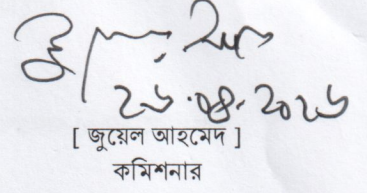 ২৬.০৪.২০২৬
[ জুয়েল আহমেদ ]
কমিশনার